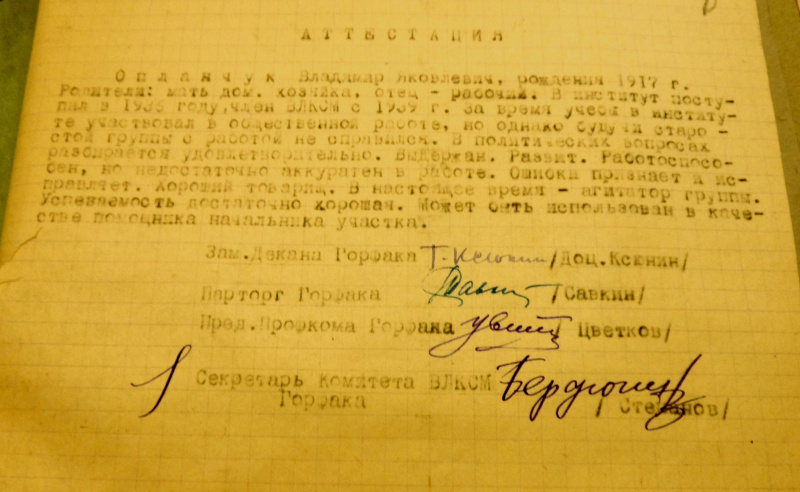 АТТЕСТАЦИЯ
Опланчук Владимир Яковлевич, рождения 1917 г.
Родители: мать дом. хозяйка, отец - рабочий. В институт посту-
пал в 1936 году, член ВЛКСМ с 1939 г. За время учебы в институ-
те участвовал в общественной работе, но однако будучи старо -
стой группы с работой не справился. В политических вопросах
разбирается удовлетворительно. Выдержан. Развит. Работоспосо-
бен, но недостаточно аккуратен в работе. Ошибки признает и ис-
правляет. Хороший товарищ. В настоящее время - агитатор группы.
Успеваемость достаточно хорошая. Может быть использован в каче-
стве помощника начальника участка.
Зам.Декана Горфака Т. Ксюнин /Доц.Ксюнин/
Парторг Горфака Савкин /Савкин/
Пред.Профкома Горфака Цветков/
Секретарь Комитета ВЛКСМ
Горфака / Степанов/